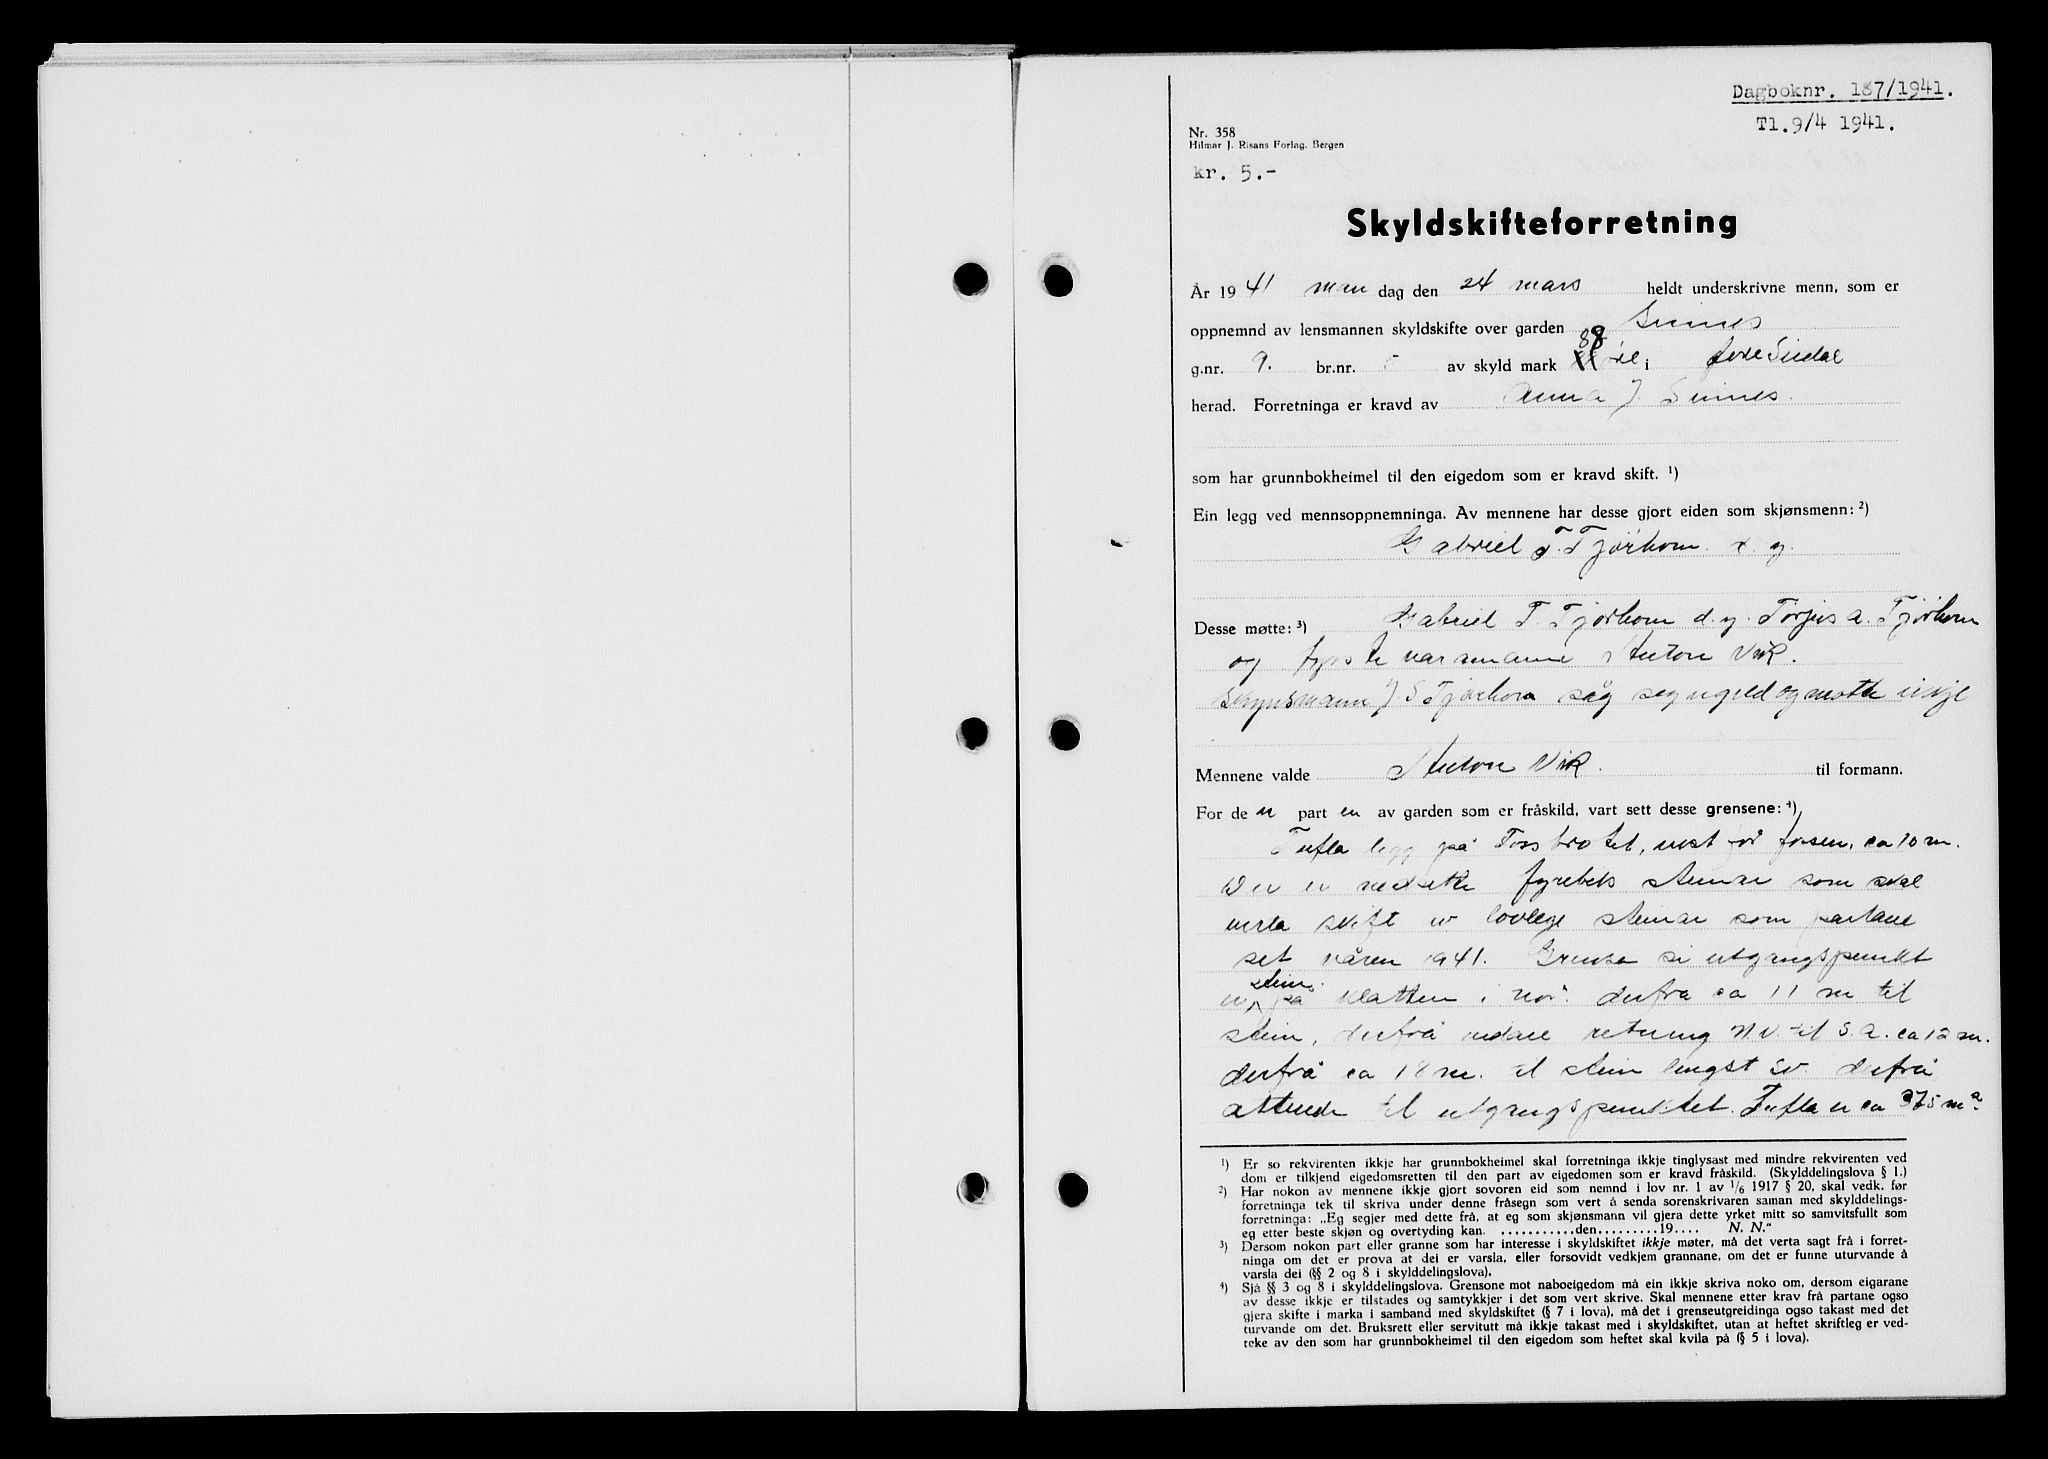 Dagboknr. 187/1941.
Tl. 9/4 1941.
Nr. 358
Hilmar J. Risans Forlag, Bergen
kr. 5.-
Skyldskifteforretning
År 1941 man dag den 24 mars heldt underskrivne menn, som er
oppnemnd av lensmannen skyldskifte over garden Sinnes
g.nr. 9. br.nr. 5 av skyld mark 88 øre i Øvre Sirdal
herad. Forretninga er kravd av Anna J. Sinnes.
som har grunnbokheimel til den eigedom som er kravd skift. ¹)
Ein legg ved mennsoppnemninga. Av mennene har desse gjort eiden som skjønsmenn: ²)
Gabriel T. Tjørhom d. y.
Desse møtte: ³) Gabriel T. Tjørhom d. y. Torjus A. Tjørhom
og fyrste varamann Anton Vik.
Skjønsmann J. S Tjørhom såg seg ugild og møtte ikkje
Mennene valde Anton Vik. til formann.
For de n part en av garden som er fråskild, vart sett desse grensene: ⁴)
Tufta legg på Fossbrotet, vest for fossen, ca 10 m.
Der er nedsette fyrebels steinar som skal
verta skift ut lovlege steinar som partane
set våren 1941. Grensa si utgangspunkt
er stein på klatten i nor. derfra ca 11 m til
stein, derfrå vidare retning N V. til S. A. ca 12 m.
derfrå ca 18 m. til stein lengst SV. derfrå
attende til utgangspunktet. Tufta er ca 375 m².
¹) Er so rekvirenten ikkje har grunnbokheimel skal forretninga ikkje tinglysast med mindre rekvirenten ved
dom er tilkjend eigedomsretten til den part av eigedomen som er kravd fråskild. (Skylddelingslova § 1.)
²) Har nokon av mennene ikkje gjort sovoren eid som nemnd i lov nr. 1 av 1/6 1917 § 20, skal vedk. før
forretninga tek til skriva under denne fråsegn som vert å senda sorenskrivaren saman med skylddelings-
forretninga: „Eg segjer med dette frå, at eg som skjønsmann vil gjera dette yrket mitt so samvitsfullt som
eg etter beste skjøn og overtyding kan. ...........den.........19.... N. N.“
³) Dersom nokon part eller granne som har interesse i skyldskiftet ikkje møter, må det verta sagt frå i forret-
ninga om det er prova at dei er varsla, eller forsovidt vedkjem grannane, om det er funne uturvande å
varsla dei (§§ 2 og 8 i skylddelingslova).
⁴) Sjå §§ 3 og 8 i skylddelingslova. Grensone mot naboeigedom må ein ikkje skriva noko om, dersom eigarane
av desse ikkje er tilstades og samtykkjer i det som vert skrive. Skal mennene etter krav frå partane ogso
gjera skifte i marka i samband med skyldskiftet (§ 7 i lova), må det i grenseutgreidinga ogso takast med det
turvande om det. Bruksrett eller servitutt må ikkje takast med i skyldskiftet, utan at heftet skriftleg er ved-
teke av den som har grunnbokheimel til den eigedom som heftet skal kvila på (§ 5 i lova).